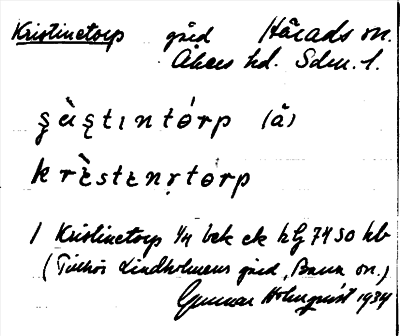 Kristinetorp gård Härads sn.
Åkers hd. Sdm. l.
şὰştıntórp (å)
krɛ̀stɛnṛtórp
1 Kristinetorp 1/4 bek ek hg 7450 kb
(Tillhör Lindholmens gård, Barva sn.)
Gunnar Holmqvist 1934